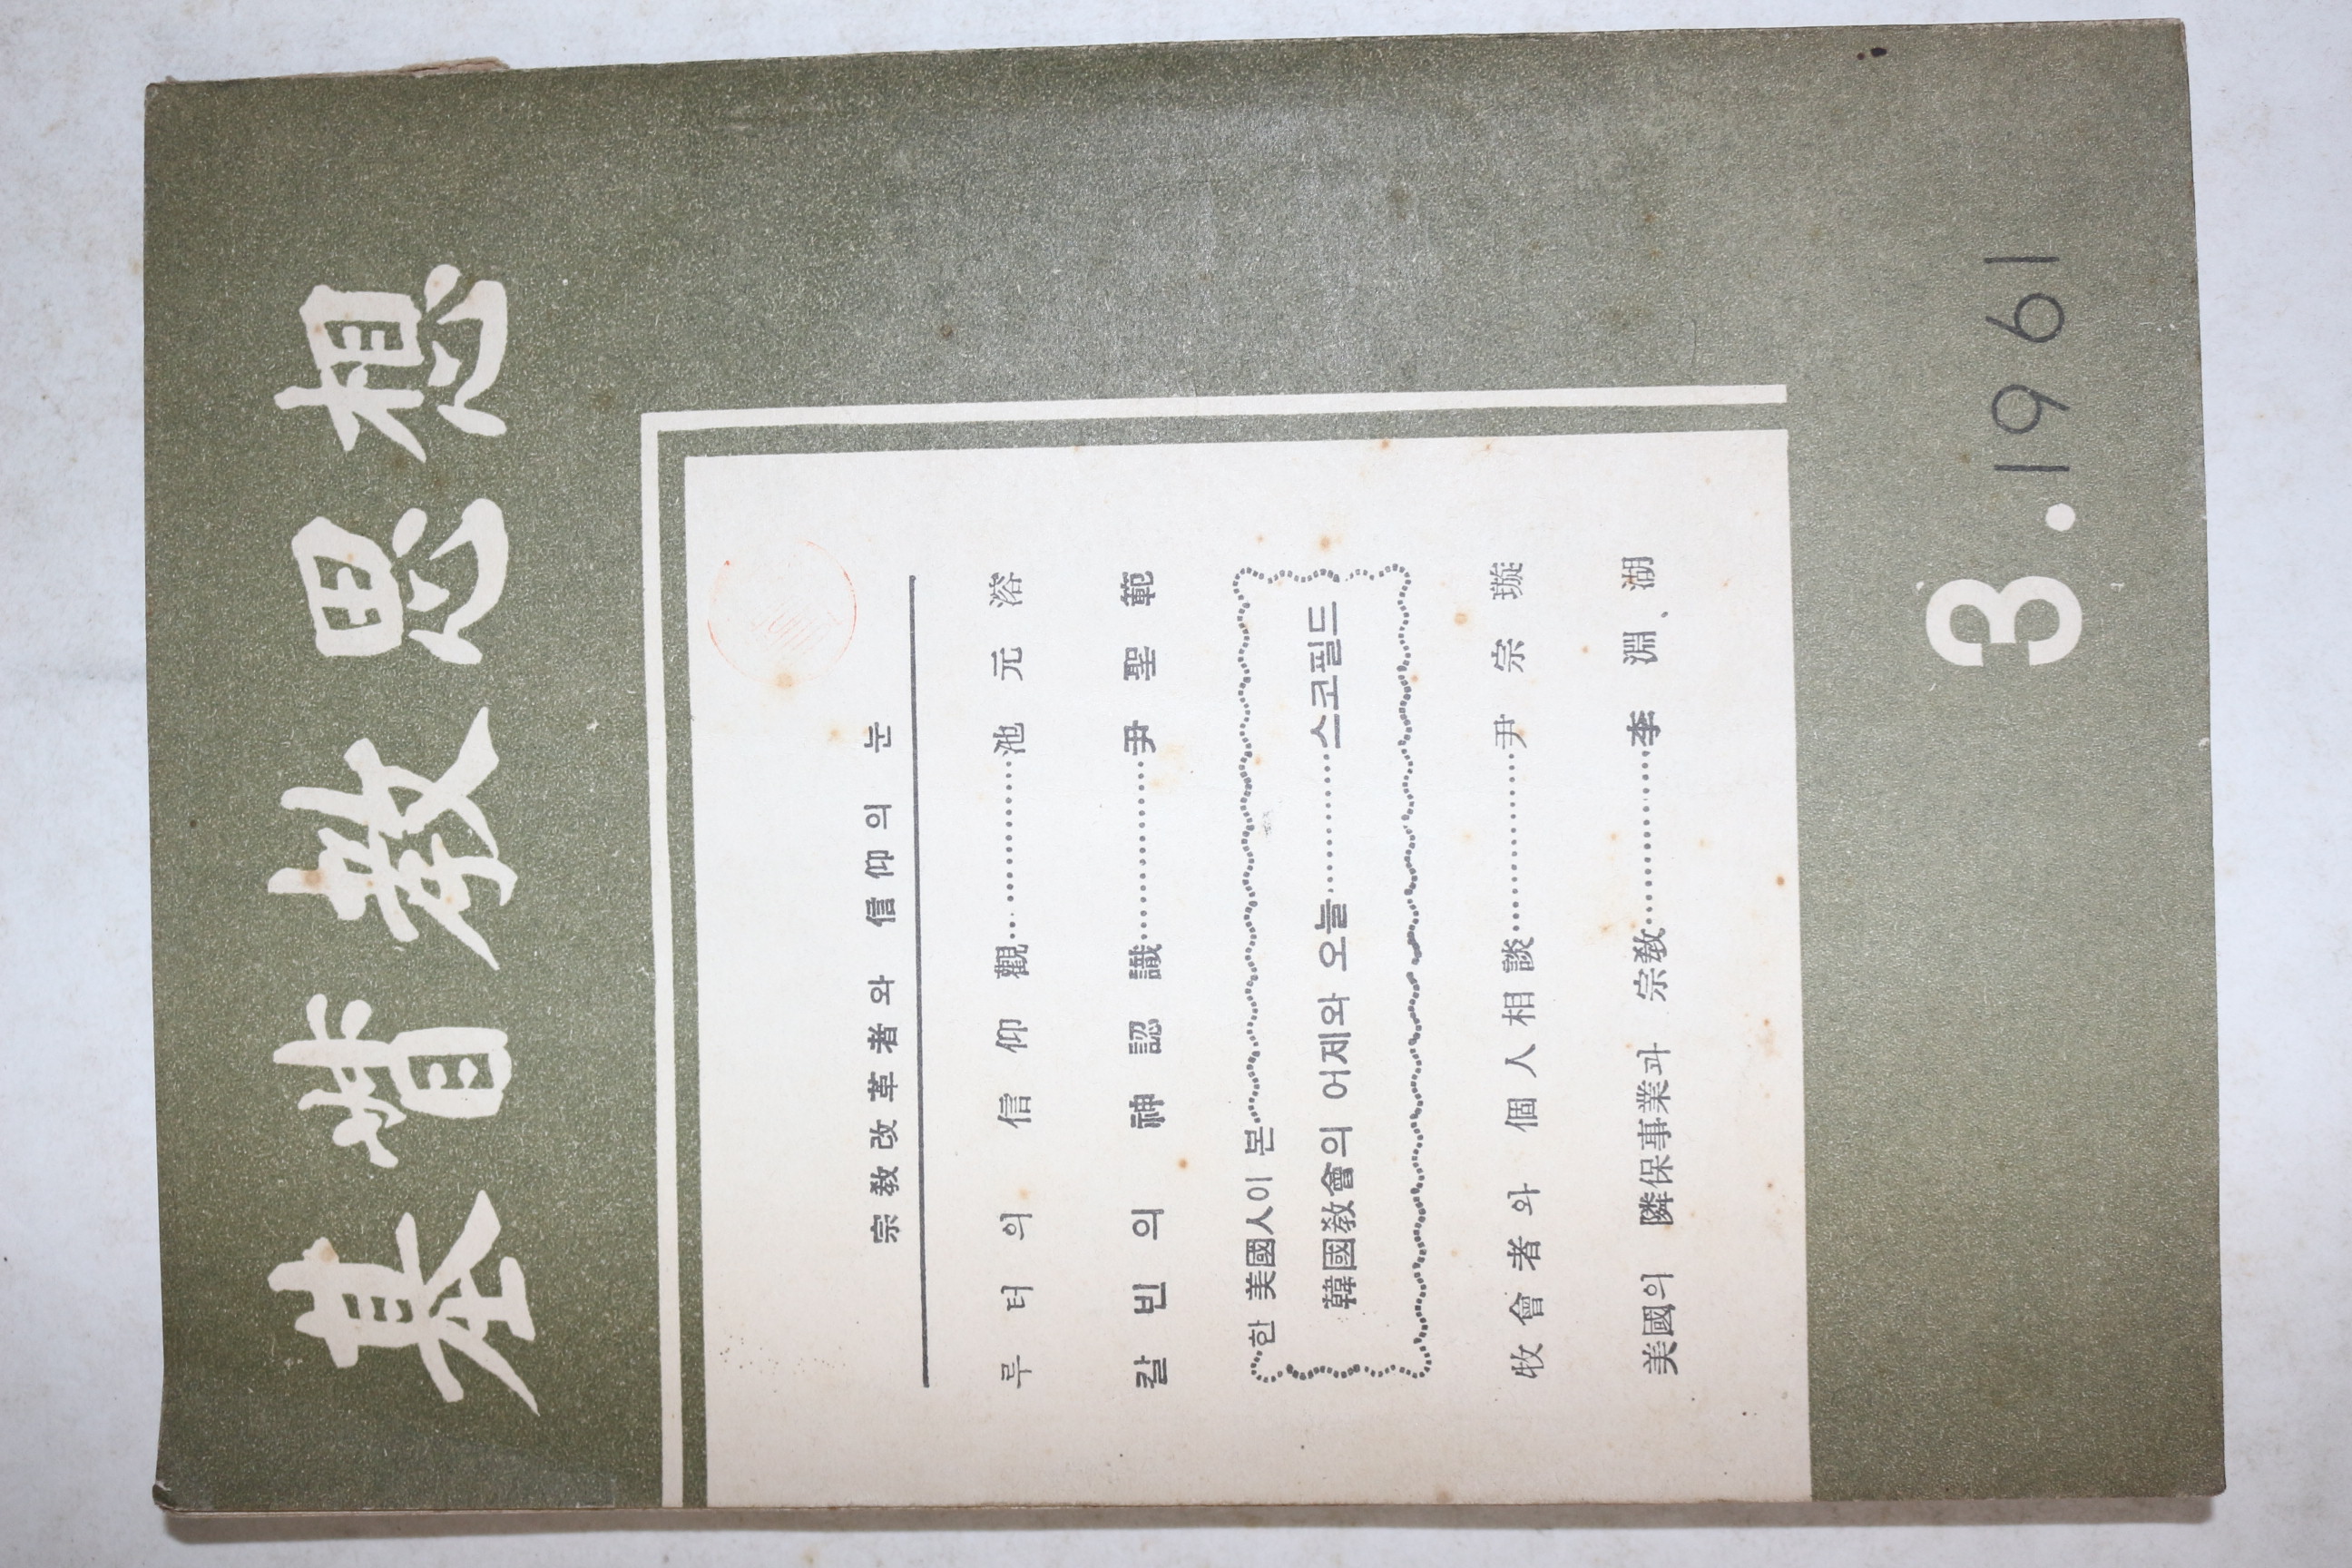 基督敎思想
宗敎改革者와 信仰의 눈
루터의 信仰觀…………池元溶
칼빈의 神認識…………尹聖範
한 美國人이 본
韓國敎會의 어제와 오늘…………스코필드
牧會者와 個人相談…………尹宗璇
美國의 隣保事業과 宗敎…………李淵湖
3.1961